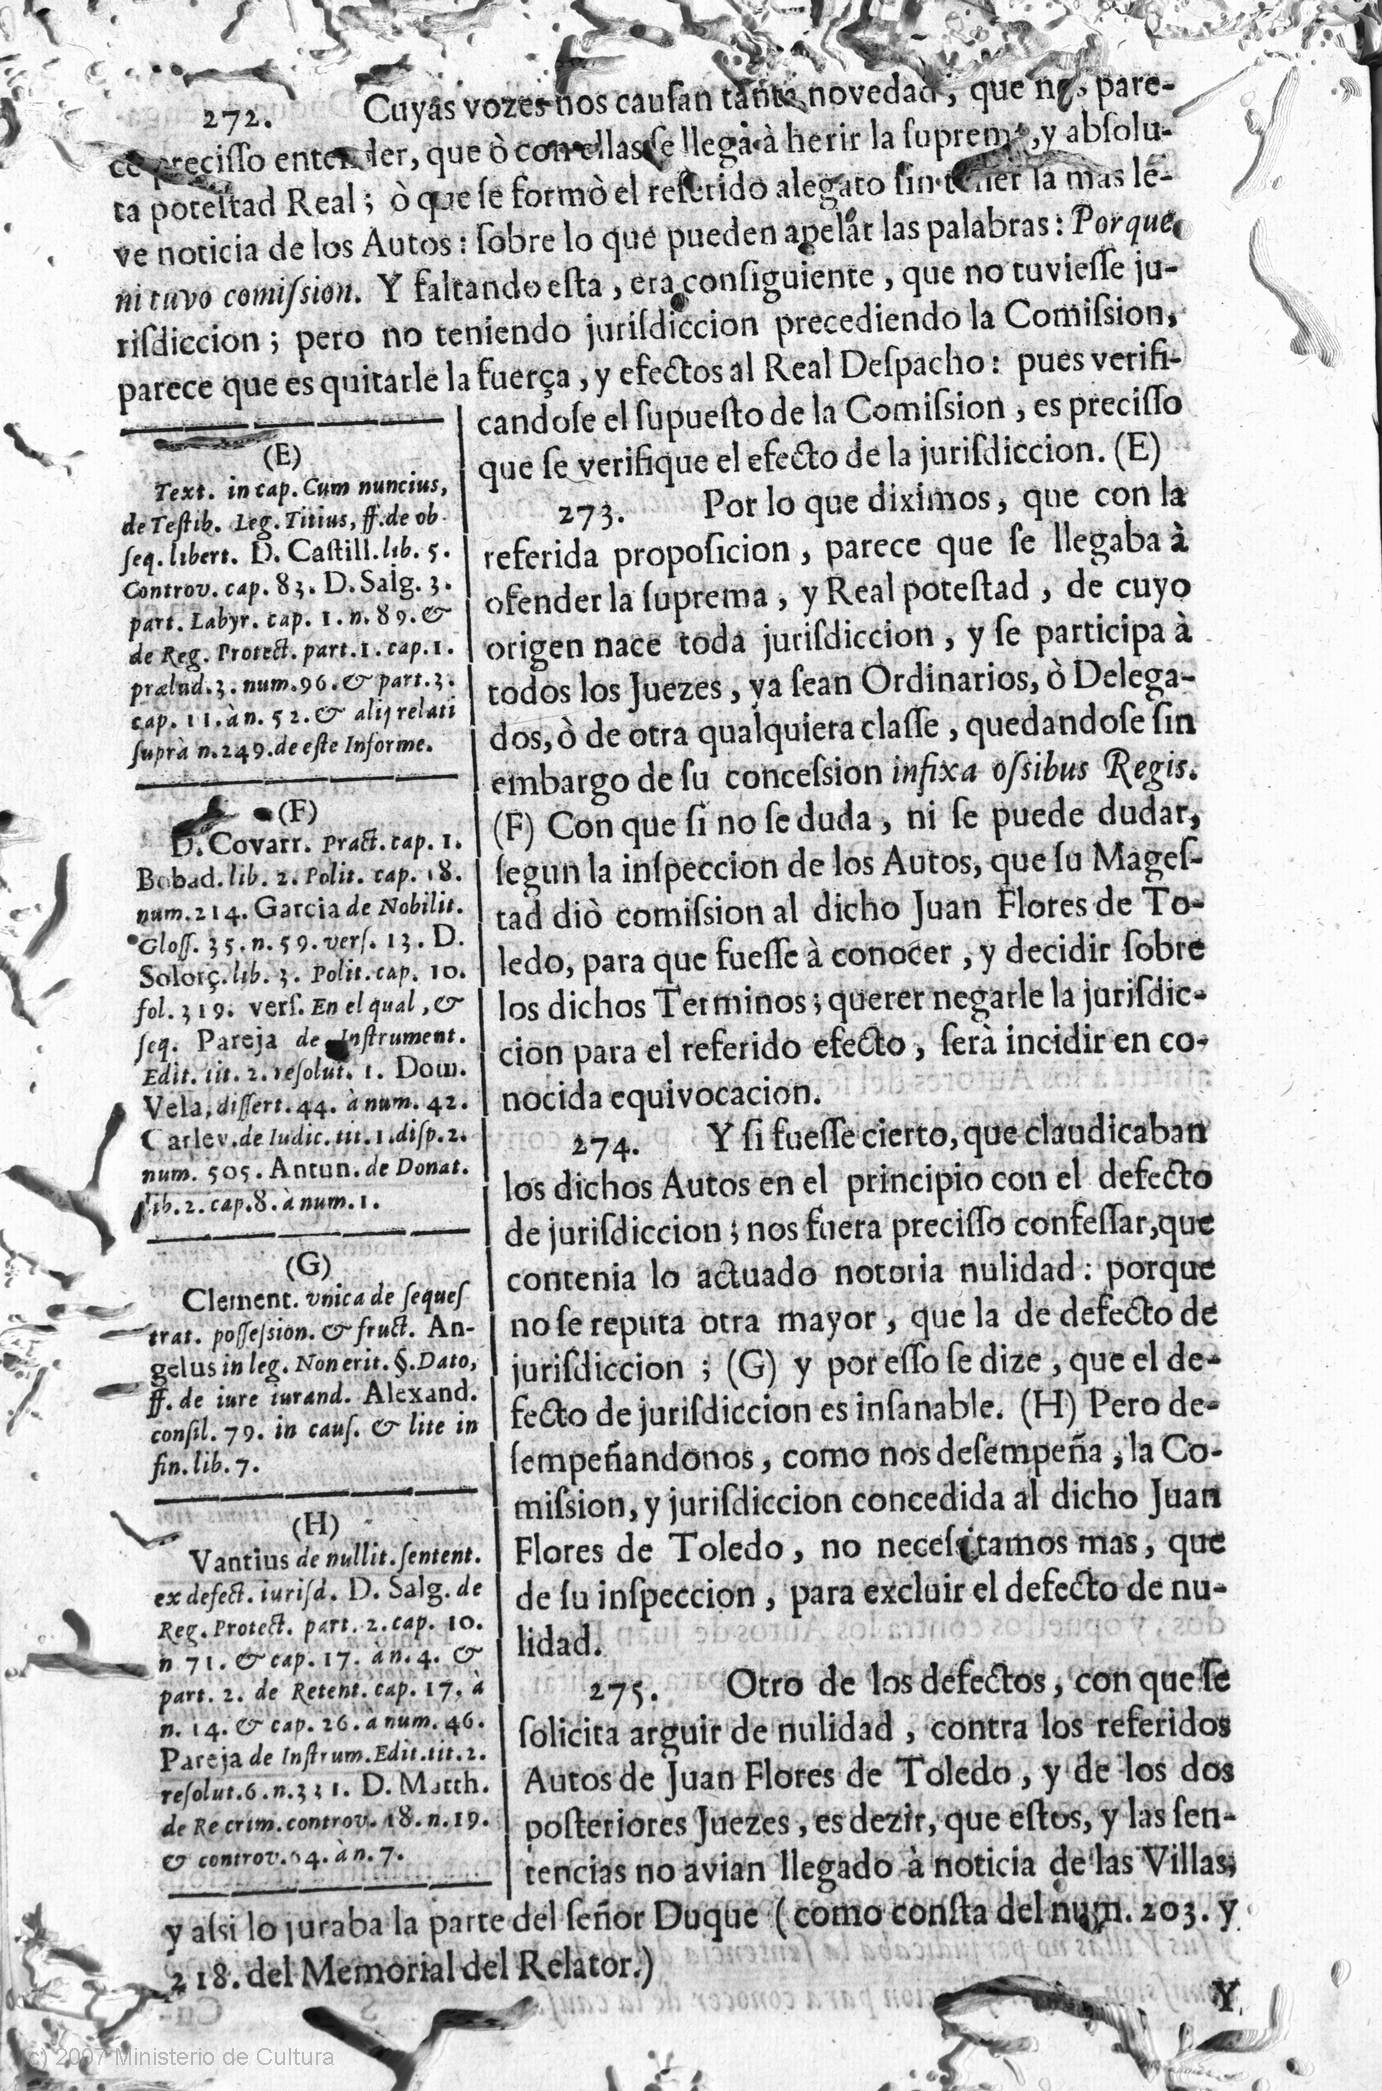 272. Cuyas vozes nos causan tanta novedad, que nos pare-
ce precisso entender, que ò con ellas se llega à herir la suprema, y absolu-
ta potestad Real; ò que se formò el referido alegato sin tener la mas le-
ve noticia de los Autos: sobre lo que pueden apelar las palabras: Porque
ni tuvo comission. Y faltando esta, era consiguiente, que no tuviesse ju-
risdiccion; pero no teniendo jurisdiccion precediendo la Comission,
parece que es quitarle la fuerça, y efectos al Real Despacho: pues verifi-
candose el supuesto de la Comission, es precisso
que se verifique el efecto de la jurisdiccion. (E)
273. Por lo que diximos, que con la
referida proposicion, parece que se llegaba à
ofender la suprema, y Real potestad, de cuyo
origen nace toda jurisdiccion, y se participa à
todos los Juezes, ya sean Ordinarios, ò Delega-
dos, ò de otra qualquiera classe, quedandose sin
embargo de su concession infixa ossibus Regis.
(F) Con que si no se duda, ni se puede dudar,
segun la inspeccion de los Autos, que su Mages-
tad diò comission al dicho Juan Flores de To-
ledo, para que fuesse à conocer, y decidir sobre
los dichos Terminos; querer negarle la jurisdic-
cion para el referido efecto, serà incidir en co-
nocida equivocacion.
274. Y si fuesse cierto, que claudicaban
los dichos Autos en el principio con el defecto
de jurisdiccion; nos fuera precisso confessar, que
contenia lo actuado notoria nulidad: porque
no se reputa otra mayor, que la de defecto de
jurisdiccion; (G) y por esso se dize, que el de-
fecto de jurisdiccion es insanable. (H) Pero de-
sempeñandonos, como nos desempeña, la Co-
mission, y jurisdiccion concedida al dicho Juan
Flores de Toledo, no necessitamos mas, que
de su inspeccion, para excluir el defecto de nu-
lidad.
275. Otro de los defectos, con que se
solicita arguir de nulidad, contra los referidos
Autos de Juan Flores de Toledo, y de los dos
posteriores Juezes, es dezir, que estos, y las sen-
tencias no avian llegado à noticia de las Villas,
y assi lo juraba la parte del señor Duque (como consta del num. 203. y
218. del Memorial del Relator.)
Y
(E)
Text. in cap. Cum nuncius,
de Testib. Leg. Titius, ff. de ob-
seq. libert. D. Castill. lib. 5.
Controv. cap. 83. D. Salg. 3.
part. Labyr. cap. 1. n. 89. &
de Reg. Protect. part. 1. cap. 1.
prælud. 3. num. 96. & part. 3.
cap. 11. à n. 52. & alij relati
suprà n. 249. de este Informe.
(F)
D. Covarr. Pract. cap. 1.
Bobad. lib. 2. Polit. cap. 18.
num. 214. Garcia de Nobilit.
Gloss. 35. n. 59. vers. 13. D.
Solorç. lib. 3. Polit. cap. 10.
fol. 319. vers. En el qual, &
seq. Pareja de Instrument.
Edit. tit. 2. resolut. 1. Dom.
Vela, dissert. 44. à num. 42.
Carlev. de Iudic. tit. 1. disp. 2.
num. 505. Antun. de Donat.
lib. 2. cap. 8. à num. 1.
(G)
Clement. vnica de seques
trat. possession. & fruct. An-
gelus in leg. Non erit. §. Dato,
ff. de iure iurand. Alexand.
consil. 79. in caus. & lite in
fin. lib. 7.
(H)
Vantius de nullit. sentent.
ex defect. iurisd. D. Salg. de
Reg. Protect. part. 2. cap. 10.
n 71. & cap. 17. à n. 4. &
part. 2. de Retent. cap. 17. à
n. 14. & cap. 26. à num. 46.
Pareja de Instrum. Edit. tit. 2.
resolut. 6. n. 331. D. Matth.
de Re crim. controv. 18. n. 19.
& controv. 4. à n. 7.
(c) 2007 Ministerio de Cultura